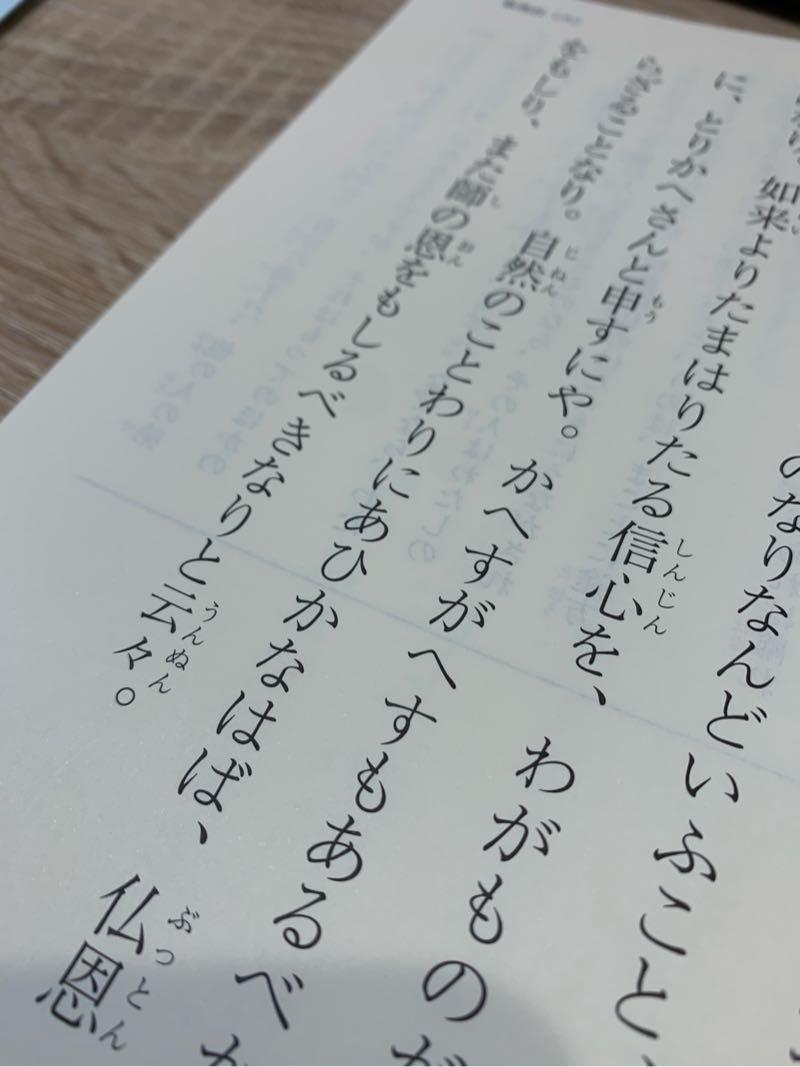 のなりなんどいふこと、
如来よりたまはりたる信心を、わがものが
しんじん
に、とりかへさんと申すにや。かへすがへすもあるべか
もう
らざることなり。自然のことわりにあひかなはば、仏恩
じねん
ぶっとん
をもしり、また師の恩をもしるべきなりと云々。
し
おん
うんぬん